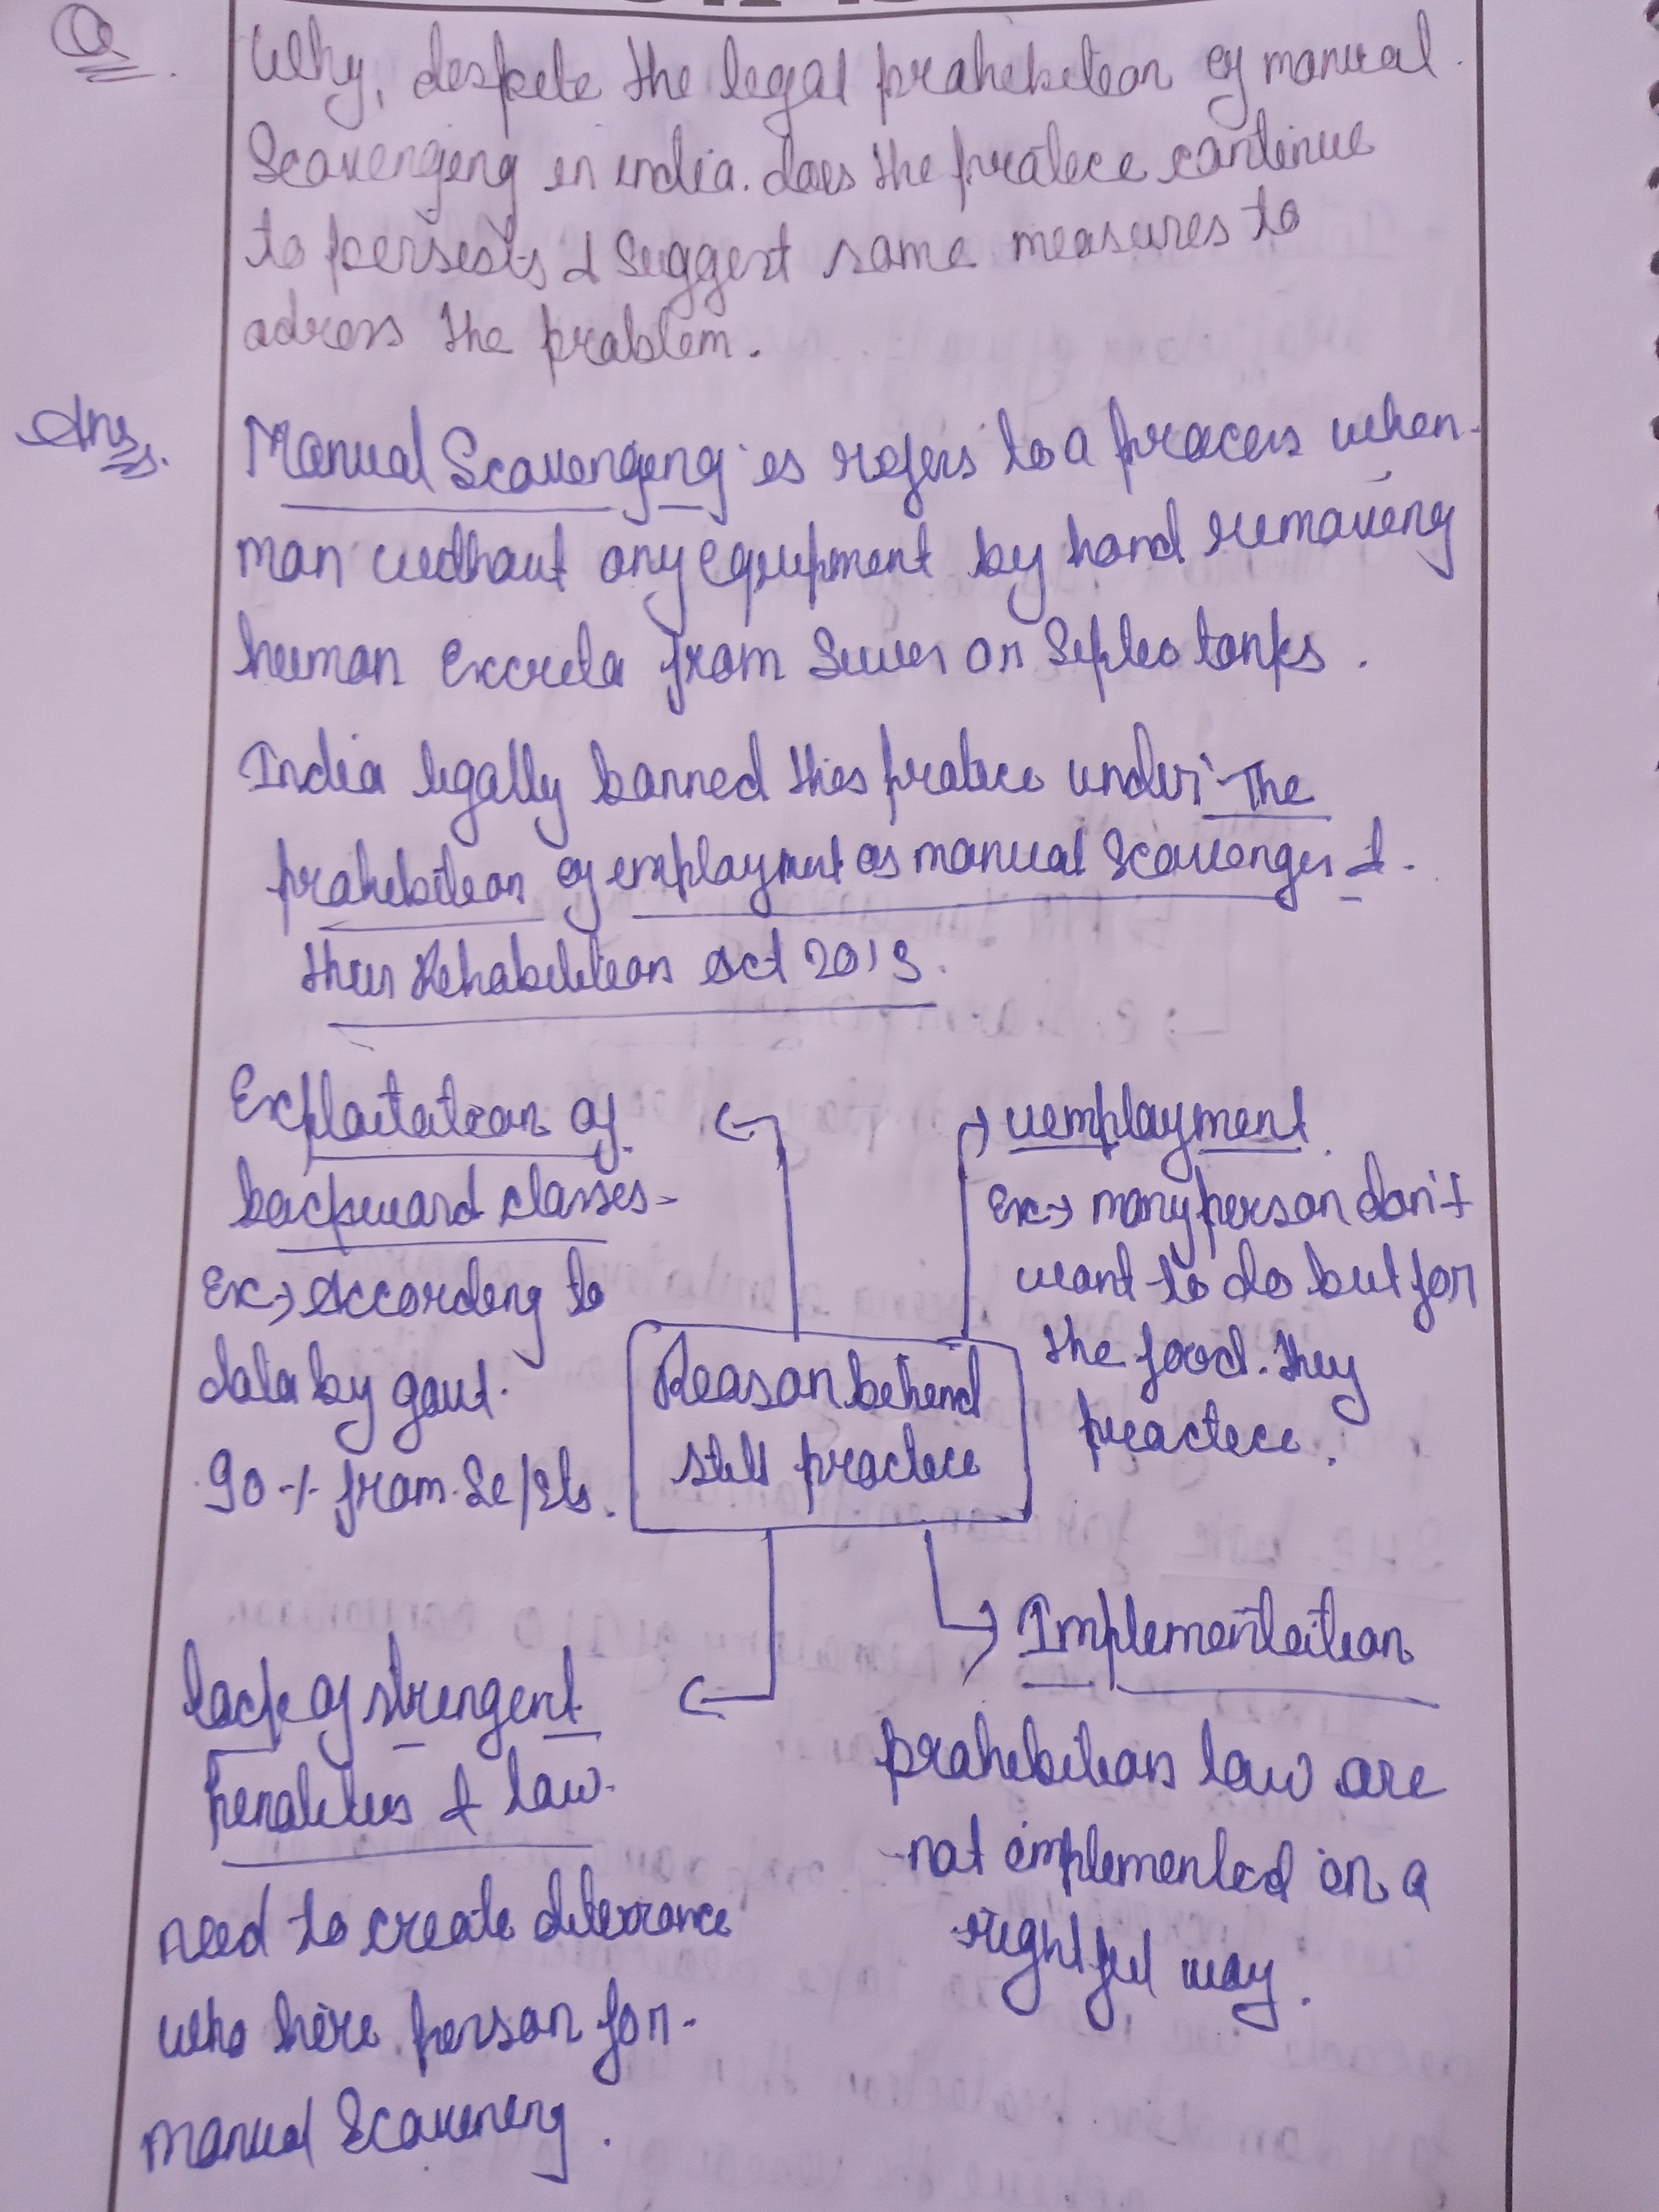 Q.
Why, despite the legal prohibition of manual
Scavenging in india. does the pratice continue
to persists & Suggest some measures to
adress the problem.
Ans.
Manual Scavenging is refers to a process when
man without any equipment by hand removing
human Excreta from Sewer or Septic tanks.
India legally banned this pratice under The
prohibition of employment as manual Scavenger &
their Rehabilition Act 2013.
Exploitation of
backward classes-
Ex→ According to
data by govt.
90% from Sc/Sts.
uemployment.
Ex→ many person don't
want to do but for
the food. they
practice.
Reason behind
still practice
lack of stringent
penalities & law.
need to create deterrance
who hire person for
manual Scavening.
Implementation
prohibition law are
not implemented in a
rightful way.